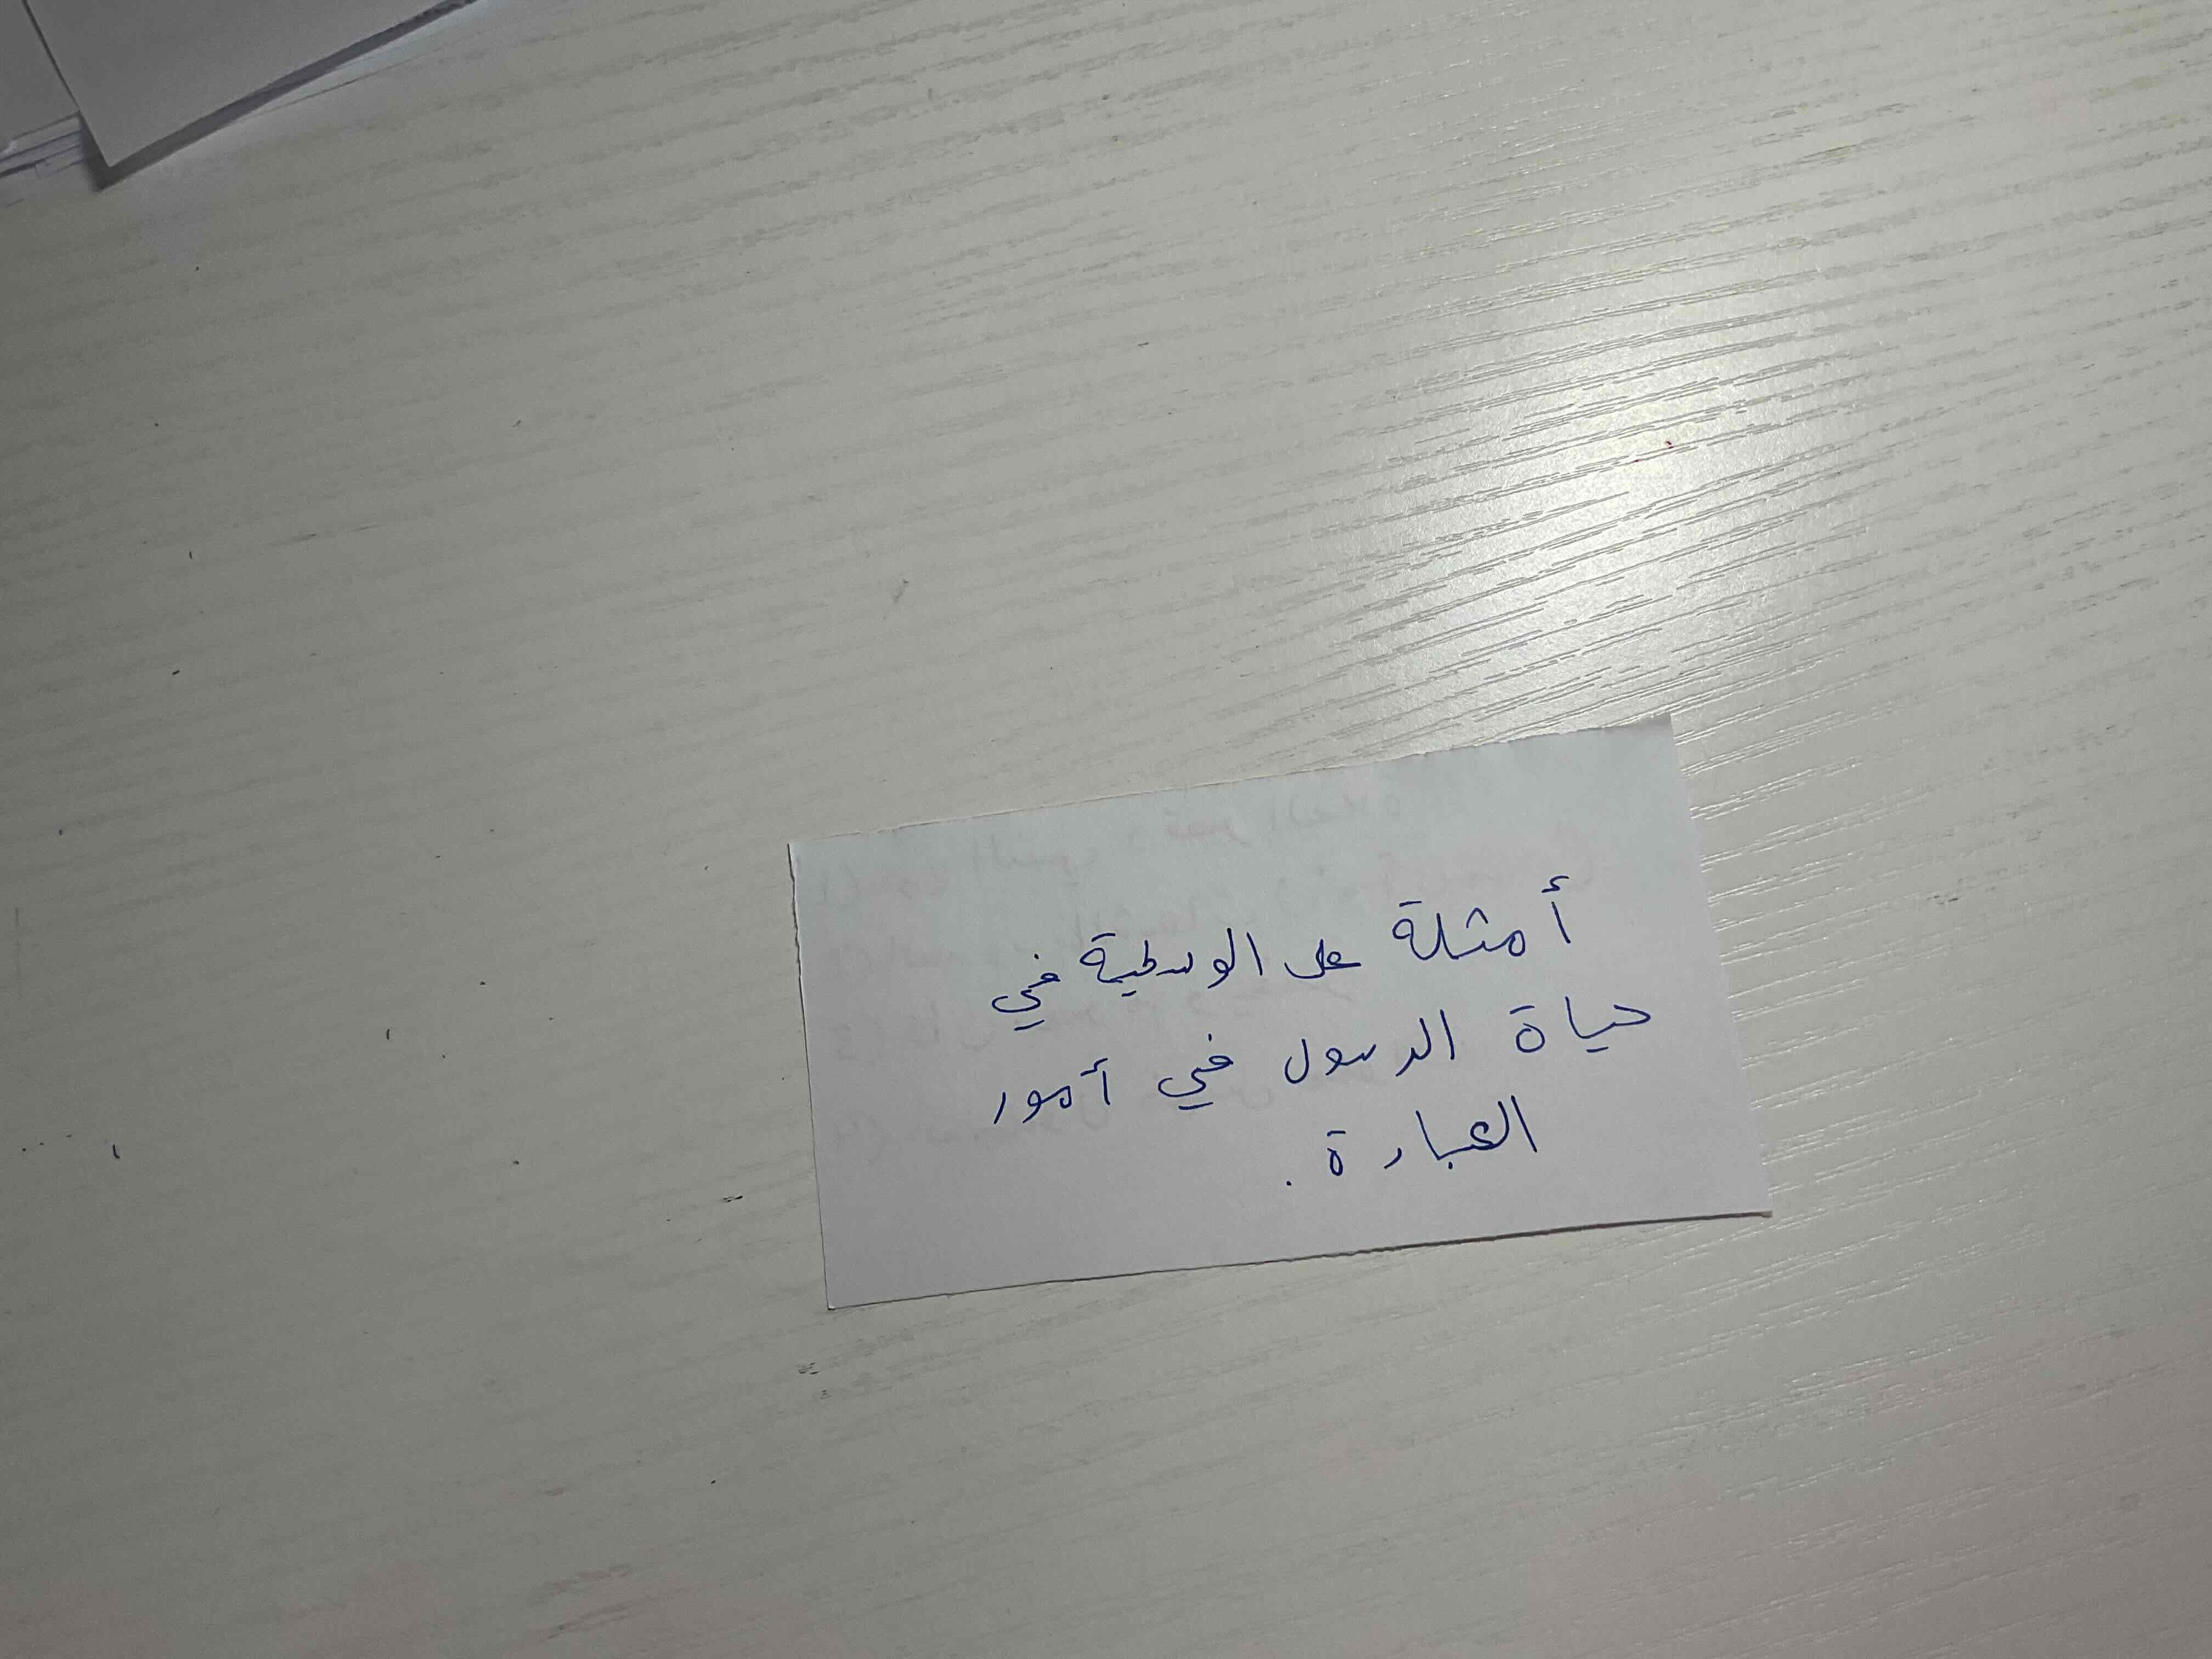 أمثلة على الوسطية في
حياة الرسول في أمور
العبادة.